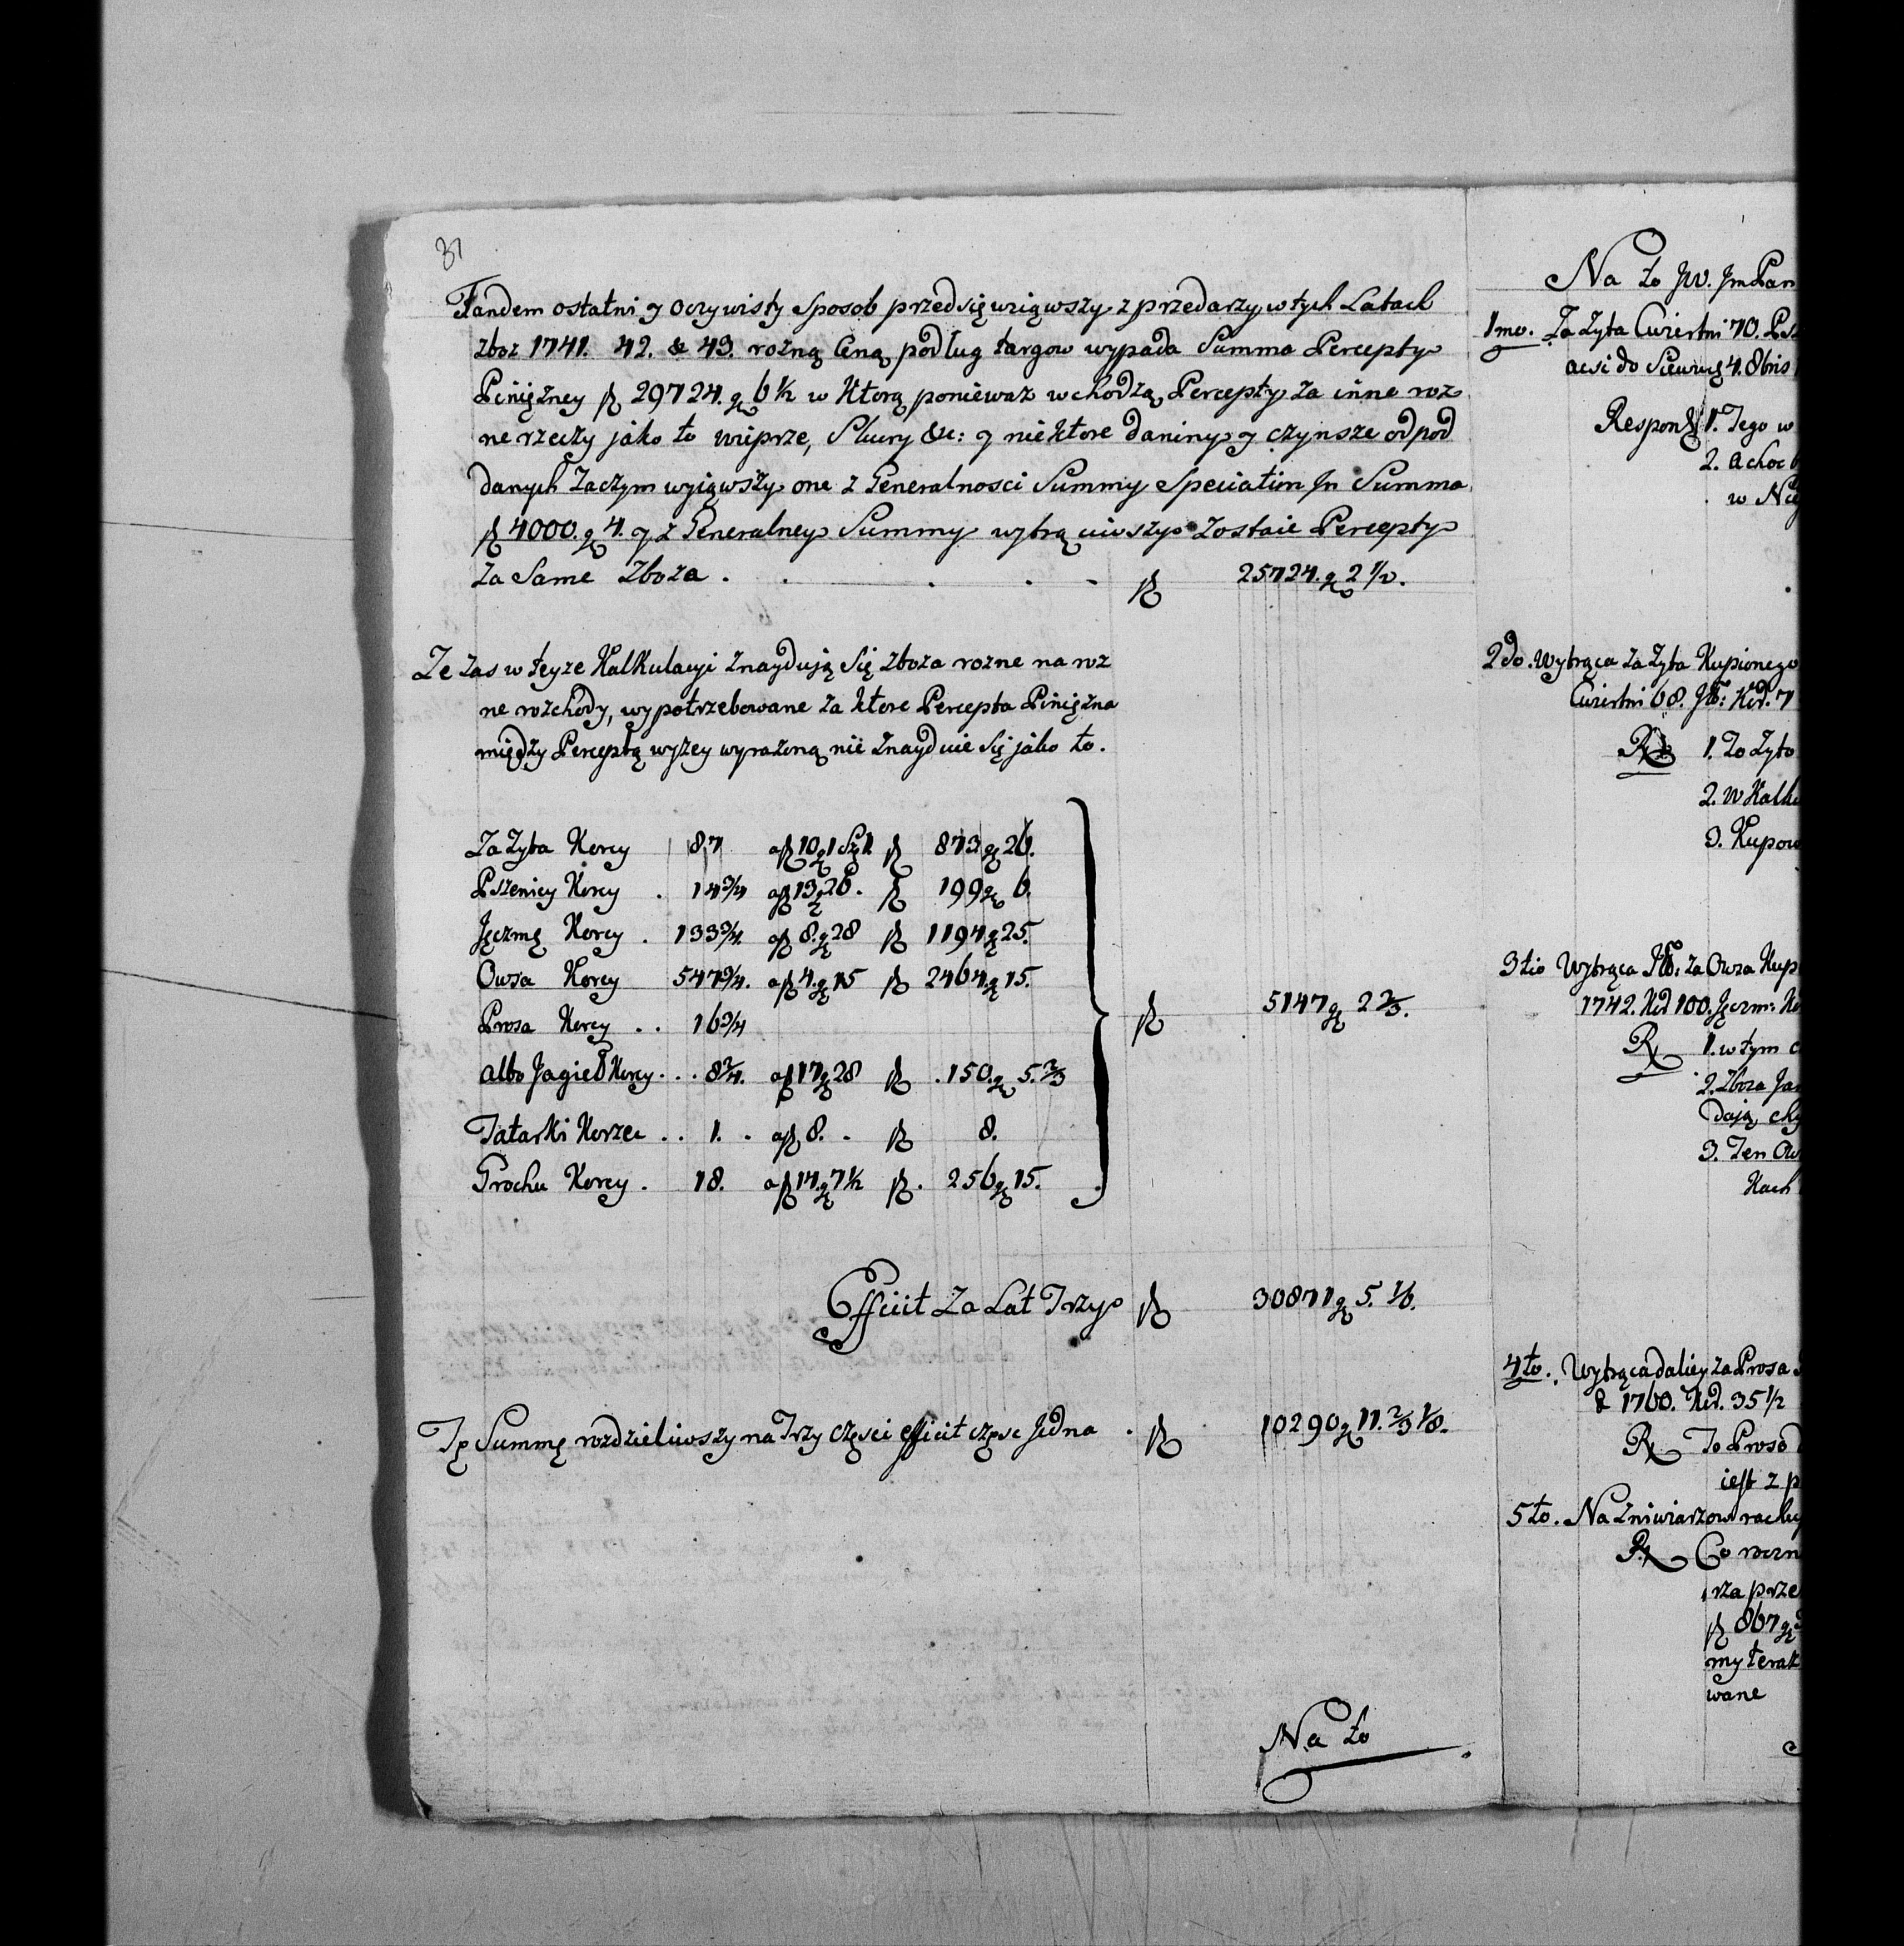 31
Tandem ostatni y oczywisty Sposob przedsięwziąwszy z przedarzy w tych Latach
zboz 1741. 42. & 43. rozną Ceną podług targow wypada Summa Percepty
Pinięzney fl 29724. g 6 1/2 w Ktorą poniewaz wchodzą Percepty za inne roz
ne rzeczy jako to wieprze, Skury &c: y niektore daniny y czynsze od pod
danych Zaczym wyiąwszy one z Generalnosci Summy Speciatim In Summa
fl 4000. g 4. y z Generalney Summy wytrąciwszy Zostaie Percepty
za Same Zboza . . . . - fl 25724. g 2 1/2.
Ze zas w teyze Kalkulacyi Znayduią Się zboza rozne na roz
ne rozchody, wypotrzebowane za ktore Percepta Pinięzna
między Perceptą wyzey wyrazoną nie Znayduie Się jako to.
Za Zyta Korcy 87 a fl 10 g 1 Szl 1 fl 873 g 26.
Pszenicy Korcy . 14 3/4 a fl 13 g 26. fl 199 g 6.
Jęczmę Korcy . 133 3/4. a fl 8. g 28 fl 1194 g 25.
Owsa Korcy 547 3/4. a fl 4. g 15 fl 2464. g 15.
Prosa Korcy . . 16 3/4
fl 5147 g 2 2/3.
albo Jagieł Korcy . . . 8 2/4. a fl 17 g 28 fl . 150. g 5. 2/3
Tatarki Korzec . . 1. . a fl 8. . fl 8.
Grochu Korcy . 18. a fl 14. g 7 1/2 fl . 256 g 15.
Efficit Za Lat Trzy fl 30871 g 5. 1/6.
Tę Summę rozdzieliwszy na Trzy Częsci efficit częsc Jedna . fl 10290 g 11. 2/3 1/8.
Na to
Na to JW. Jm Pan
1mo. Za Zyta Cwiertni 70. Psz
acsi do Siewu 4. 8bris
Respond 1. Tego w
2. a choc
w
2do. Wytrąca za Zyta Kupionego
Cwiertni 68. 7
R 1. Zo Zyto
2. W Kalku
3. Kupow
3tio Wytrąca za Owsa Kup
1742. 100. Jęczm:
R 1. w tym
2. Zboza
dają
3. Ten Ow
Kach
4to. Wytrąca daliey za Prosa
& 1760. 35 1/2
R To Proso
iest z p
5to. Na Zniwiarzow rachu
R Co roczn
rza prze
fl 867 g
my teraz
wane